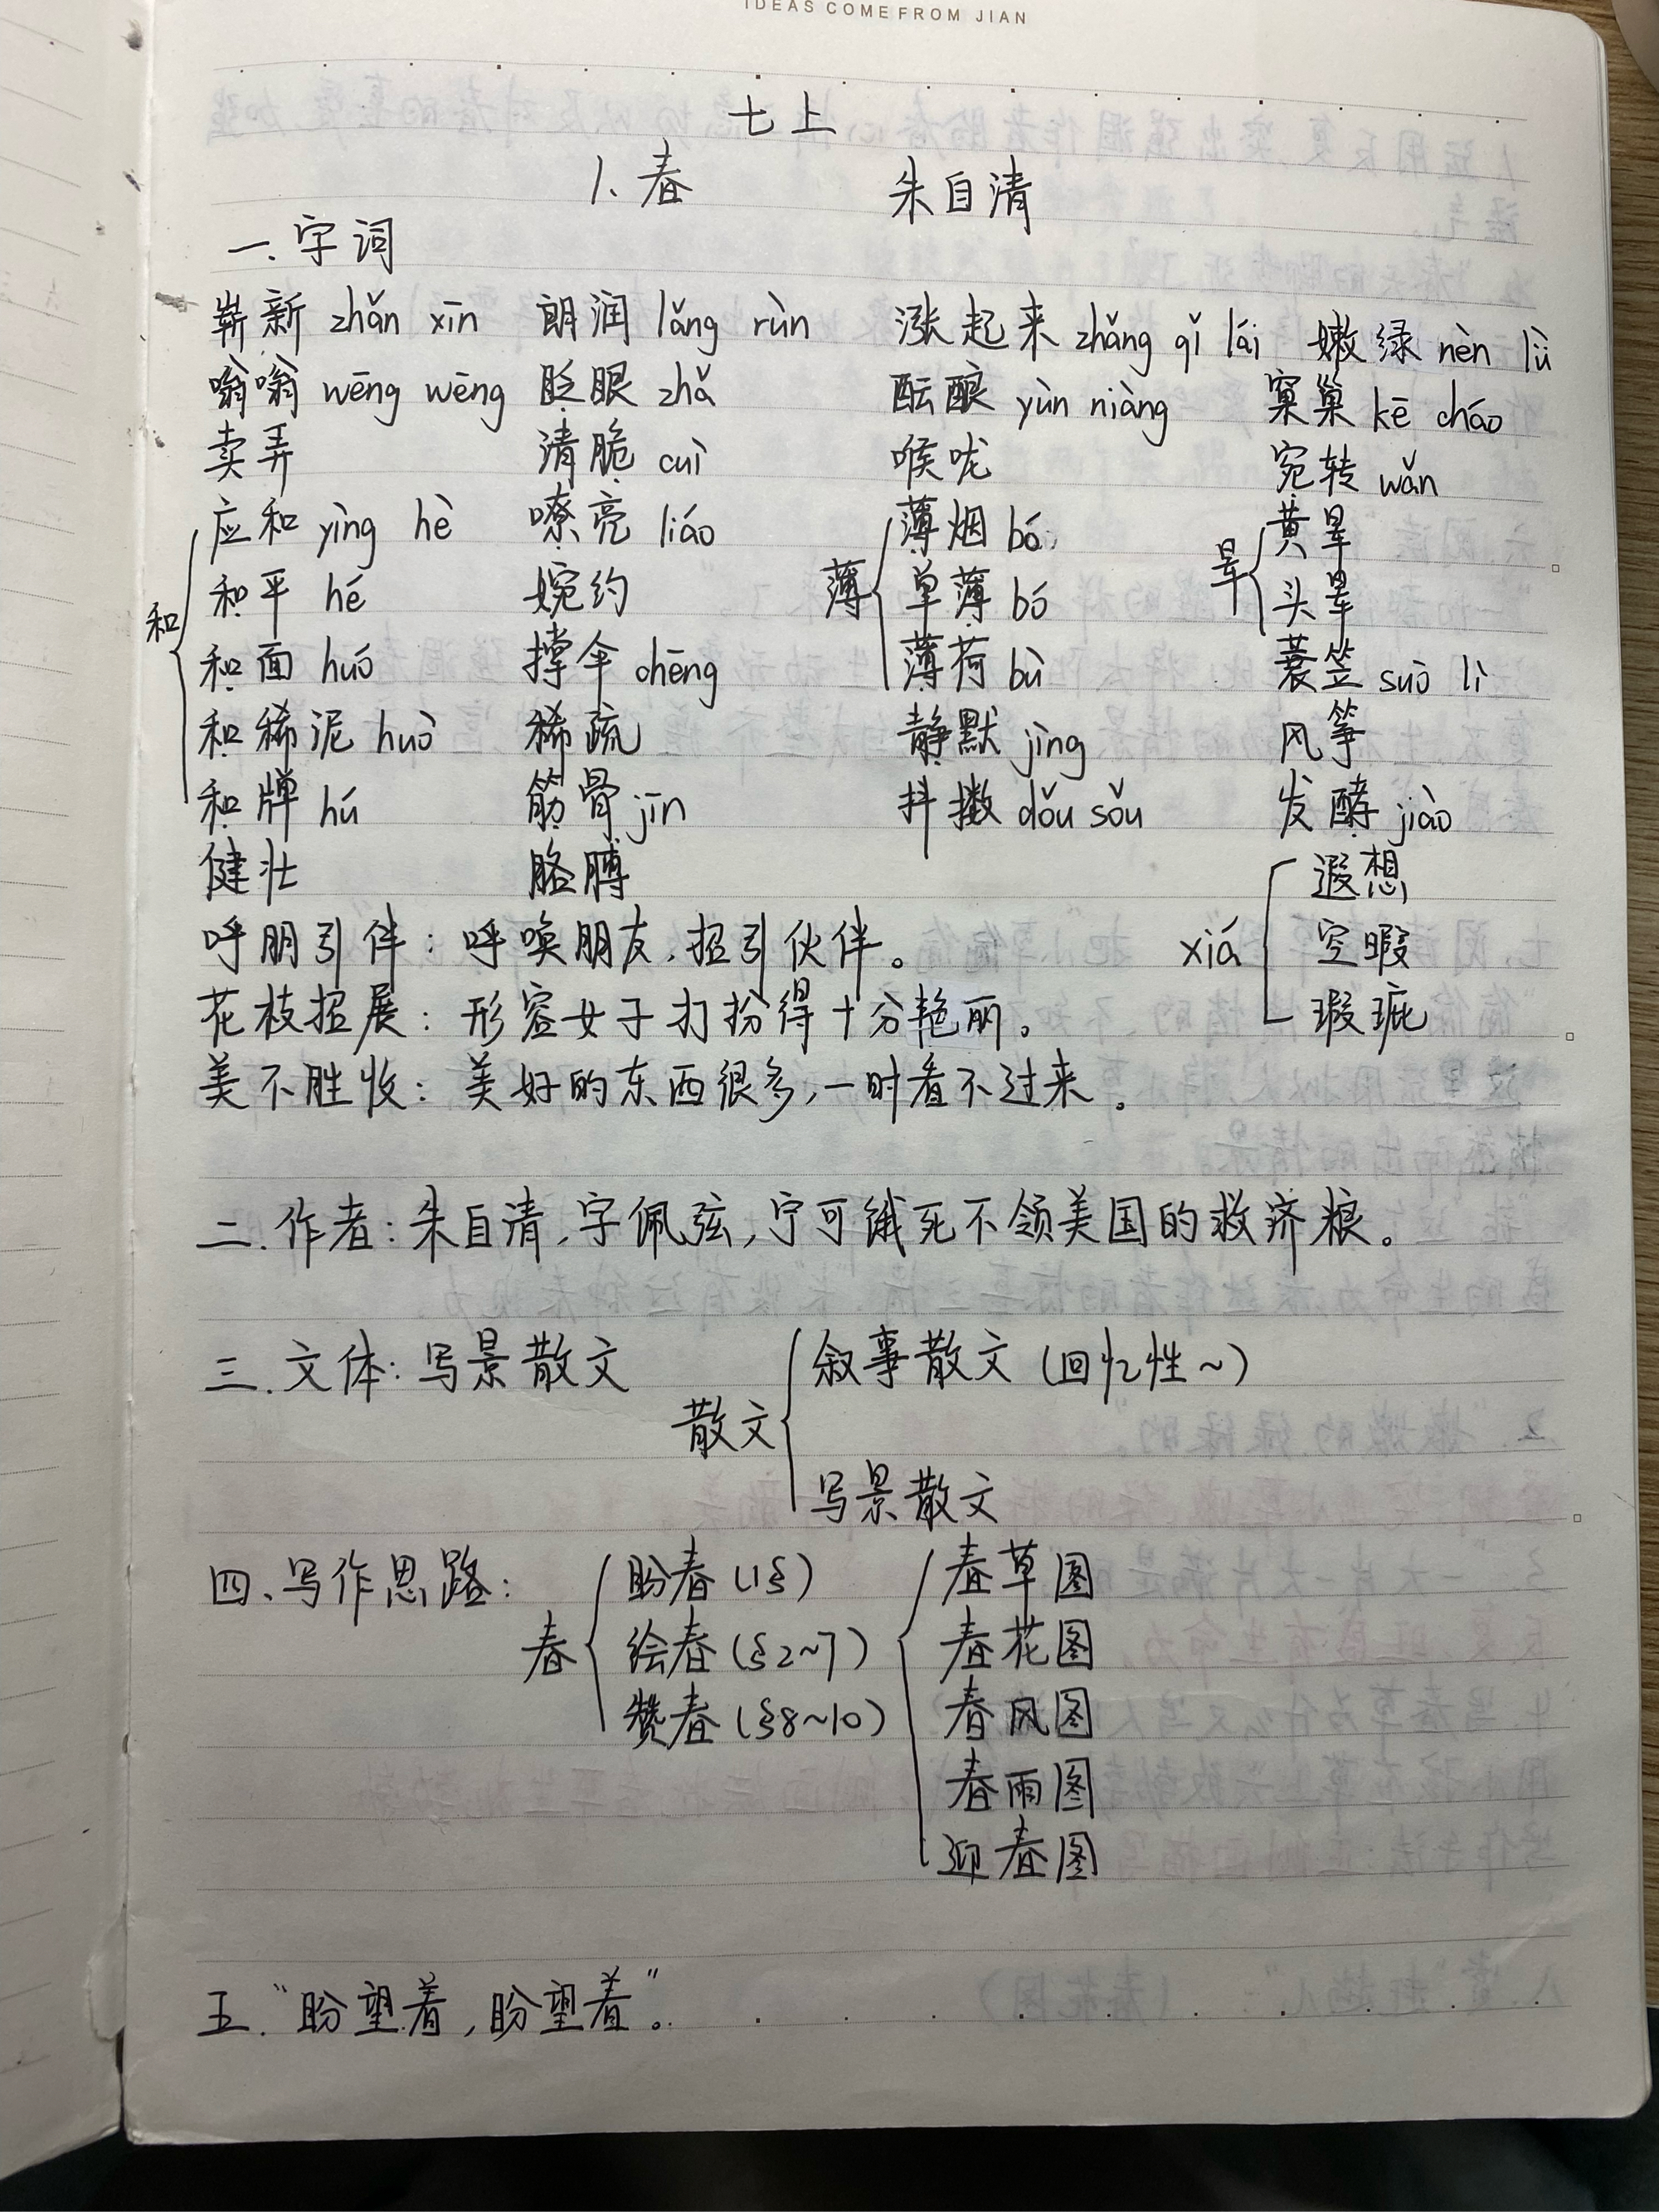 IDEAS COME FROM JIAN
七上
1.春 朱自清
一.字词
崭新 zhǎn xīn 朗润 lǎng rùn 涨起来 zhǎng qǐ lái 嫩绿 nèn lǜ
嗡嗡 wēng wēng 眨眼 zhǎ 酝酿 yùn niàng 窠巢 kē cháo
卖弄 清脆 cuì 喉咙 宛转 wǎn
应和 yìng hè 嘹亮 liáo 薄烟 bó 黄晕
和 和平 hé 婉约 薄 单薄 bó 晕 头晕
和面 huó 撑伞 chēng 薄荷 bò 蓑笠 suō lì
和稀泥 huò 稀疏 静默 jìng 风筝
和牌 hú 筋骨 jīn 抖擞 dǒu sǒu 发酵 jiào
健壮 胳膊 遐想
呼朋引伴：呼唤朋友，招引伙伴。 xiá 空暇
花枝招展：形容女子打扮得十分艳丽。 瑕疵
美不胜收：美好的东西很多，一时看不过来。
二.作者：朱自清，字佩弦，宁可饿死不领美国的救济粮。
三.文体：写景散文 叙事散文（回忆性~）
散文
写景散文
四.写作思路： 盼春（1§） 春草图
春 绘春（§2~7） 春花图
赞春（§8~10） 春风图
春雨图
迎春图
五.“盼望着，盼望着”。